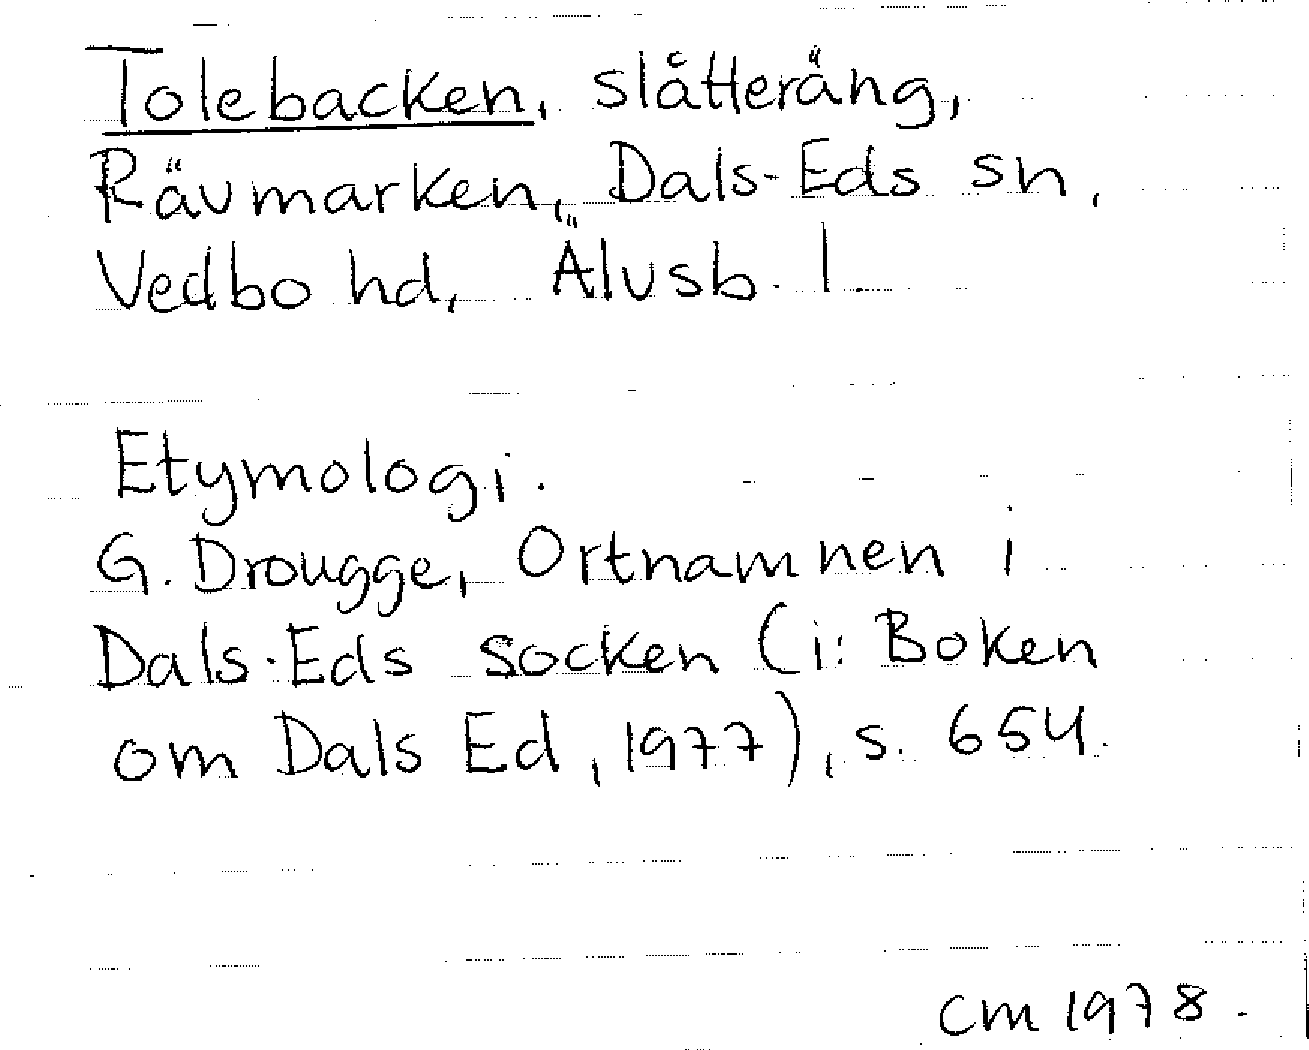 Tolebacken, slåtteräng,
Rävmarken, Dals-Eds sn,
Vedbo hd, Älvsb. l.
Etymologi.
G. Drougge, Ortnamnen i
Dals-Eds socken (i: Boken
om Dals Ed, 1977), s. 654.
CM 1978.